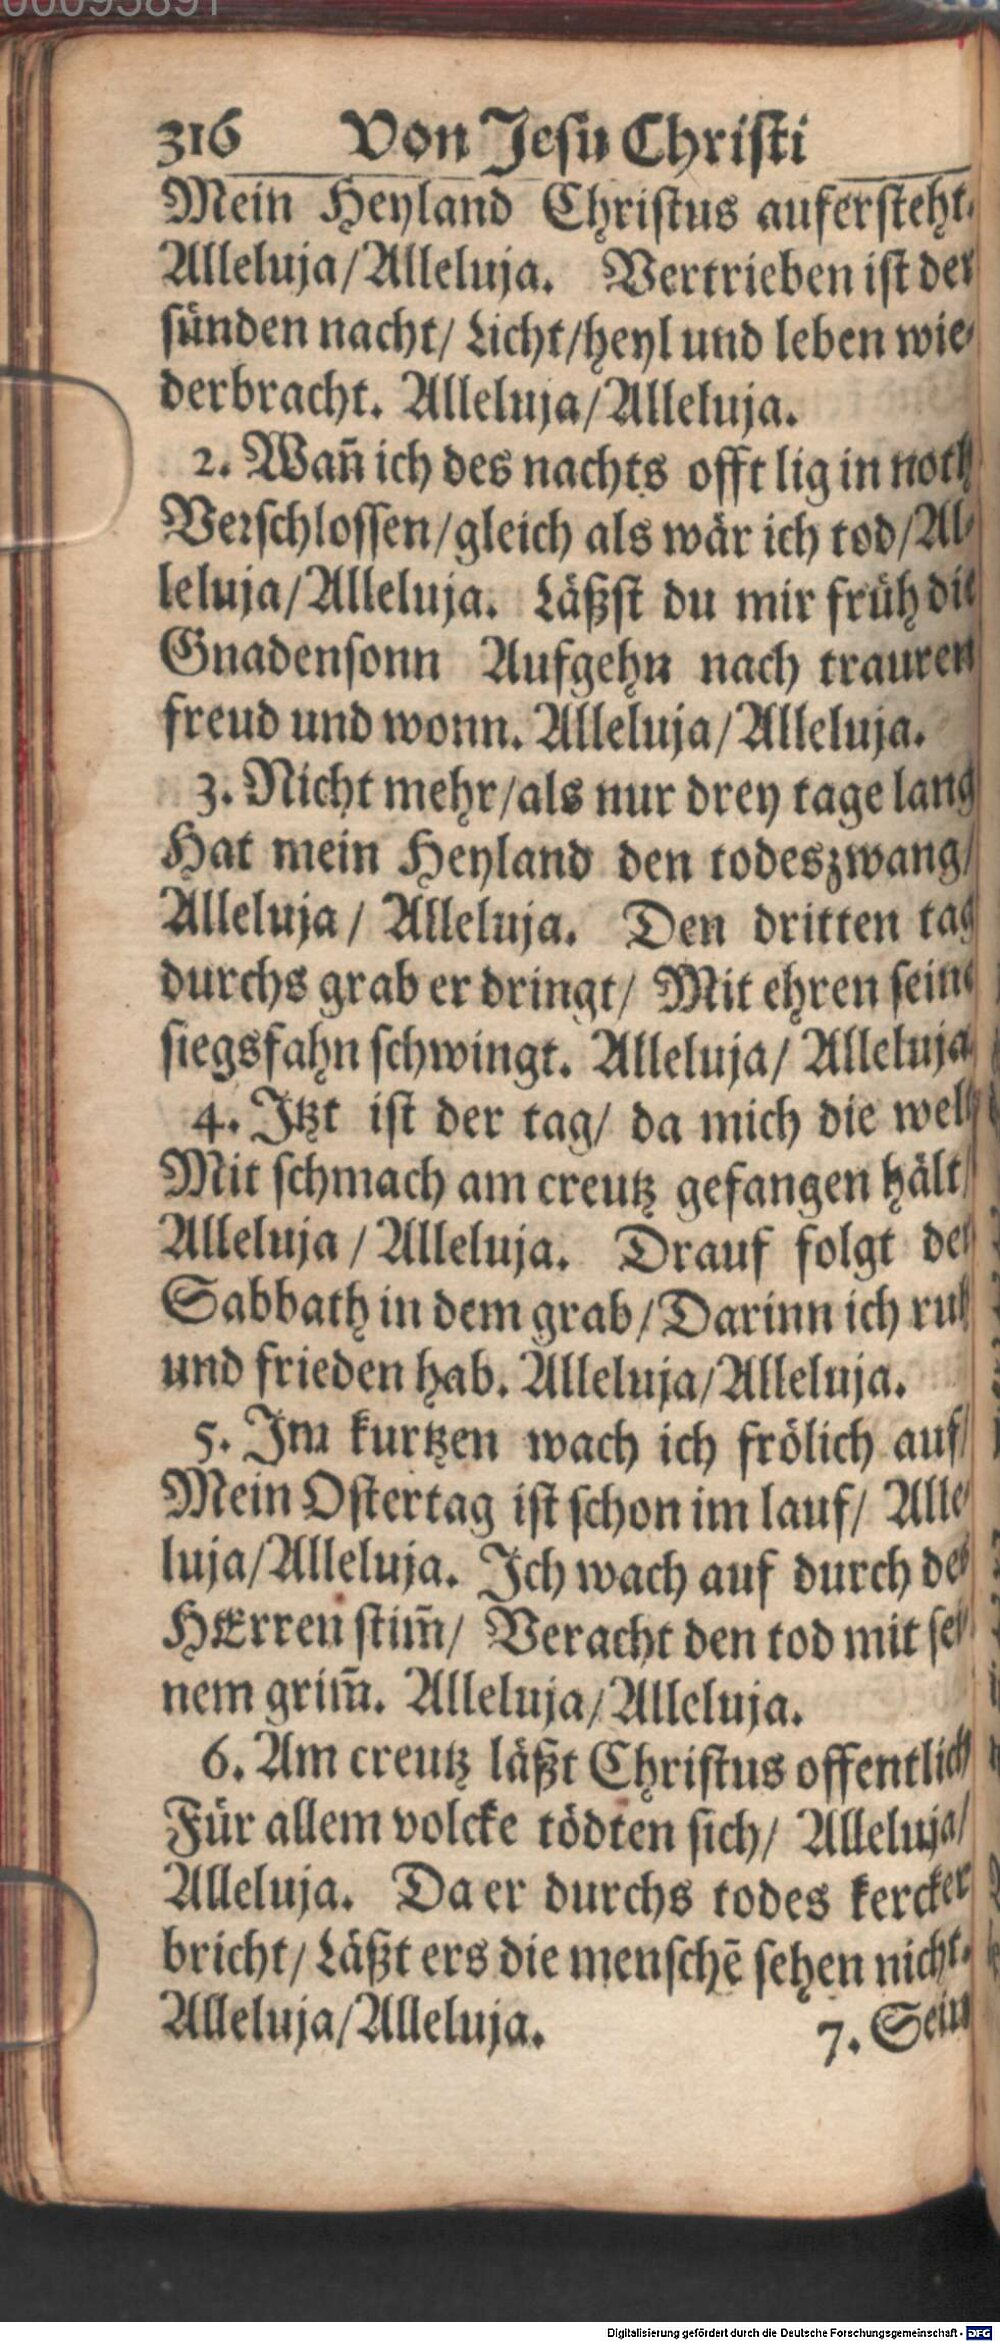 00095891
316 Von Jesu Christi
Mein Heyland Christus aufersteht.
Alleluja/Alleluja. Vertrieben ist der
sünden nacht/ Licht/heyl und leben wie-
derbracht. Alleluja/Alleluja.
2. Wañ ich des nachts offt lig in noth
Verschlossen/gleich als wär ich tod/Al-
leluja/Alleluja. Läßst du mir früh die
Gnadensonn Aufgehn nach trauren
freud und wonn. Alleluja/Alleluja.
3. Nicht mehr/als nur drey tage lang
Hat mein Heyland den todeszwang/
Alleluja/ Alleluja. Den dritten tag
durchs grab er dringt/ Mit ehren seine
siegsfahn schwingt. Alleluja/ Alleluja
4. Itzt ist der tag/ da mich die welt
Mit schmach am creutz gefangen hält/
Alleluja/Alleluja. Drauf folgt der
Sabbath in dem grab/Darinn ich ruh
und frieden hab. Alleluja/Alleluja.
5. Im kurtzen wach ich frölich auf/
Mein Ostertag ist schon im lauf/ Alle-
luja/Alleluja. Ich wach auf durch des
HErren stim̃/ Veracht den tod mit sei-
nem grim̃. Alleluja/Alleluja.
6. Am creutz läßt Christus offentlich
Für allem volcke tödten sich/ Alleluja/
Alleluja. Da er durchs todes kercker
bricht/ Läßt ers die menschẽ sehen nicht.
Alleluja/Alleluja. 7. Sein
Digitalisierung gefördert durch die Deutsche Forschungsgemeinschaft - DFG